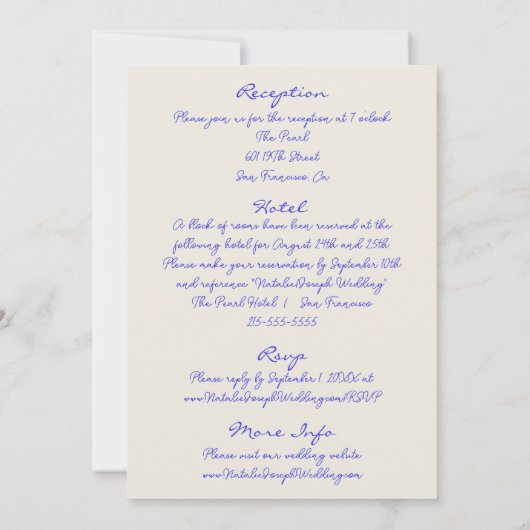 Reception
Please join us for the reception at 7 o'clock
The Pearl
601 19Th Street
San Francisco, Ca
Hotel
A block of rooms have been reserved at the
following hotel for August 24th and 25th.
Please make your reservation by September 10th
and reference "Natalie/Joseph Wedding"
The Pearl Hotel | San Francisco
215-555-5555
Rsvp
Please reply by September 1, 20XX at:
www.NatalieJosephWedding.com/RSVP
More Info
Please visit our wedding website
www.NatalieJosephWedding.com